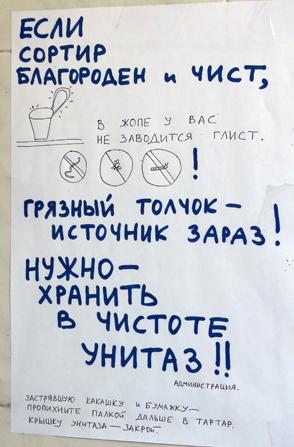 ЕСЛИ
СОРТИР
БЛАГОРОДЕН и ЧИСТ,
В ЖОПЕ У ВАС
НЕ ЗАВОДИТСЯ ГЛИСТ.
!
ГРЯЗНЫЙ ТОЛЧОК —
ИСТОЧНИК ЗАРАЗ!
НУЖНО —
ХРАНИТЬ
В ЧИСТОТЕ
УНИТАЗ!!
АДМИНИСТРАЦИЯ.
ЗАСТРЯВШУЮ КАКАШКУ И БУМАЖКУ —
ПРОПИХНИТЕ ПАЛКОЙ ДАЛЬШЕ В ТАРТАР.
КРЫШКУ УНИТАЗА — ЗАКРОЙ.